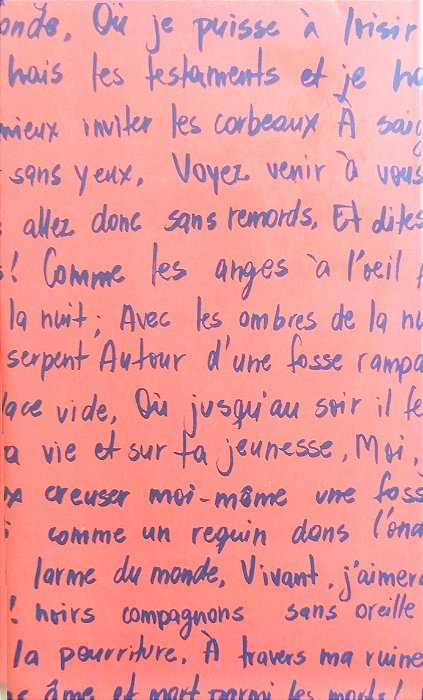 onde, Où je puisse à loisir
hais les testaments et je ha
mieux inviter les corbeaux À saig
sans yeux, Voyez venir à vous
allez donc sans remords, Et dites
! Comme les anges à l'oeil f
la nuit; Avec les ombres de la nu
serpent Autour d'une fosse rampa
lace vide, Où jusqu'au soir il fe
a vie et sur ta jeunesse, Moi,
x creuser moi-même une foss
comme un requin dans l'ond
larme du monde, Vivant, j'aimera
! noirs compagnons sans oreille
la pourriture, À travers ma ruine
s âme et mort parmi les morts!